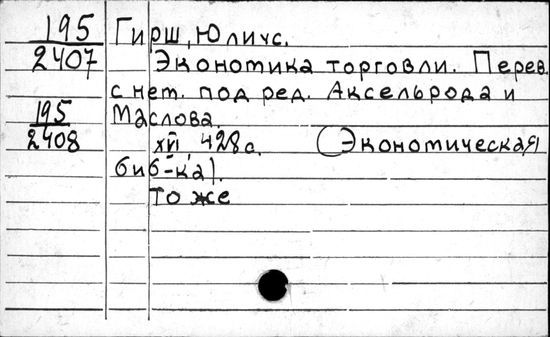 195 Гирш, Юлиус.
2407 Экономика торговли. Перев.
с нем. под ред. Аксельрода и
195 Маслова.
2408 XVI 428 с. (Экономическая
биб-ка).
То же